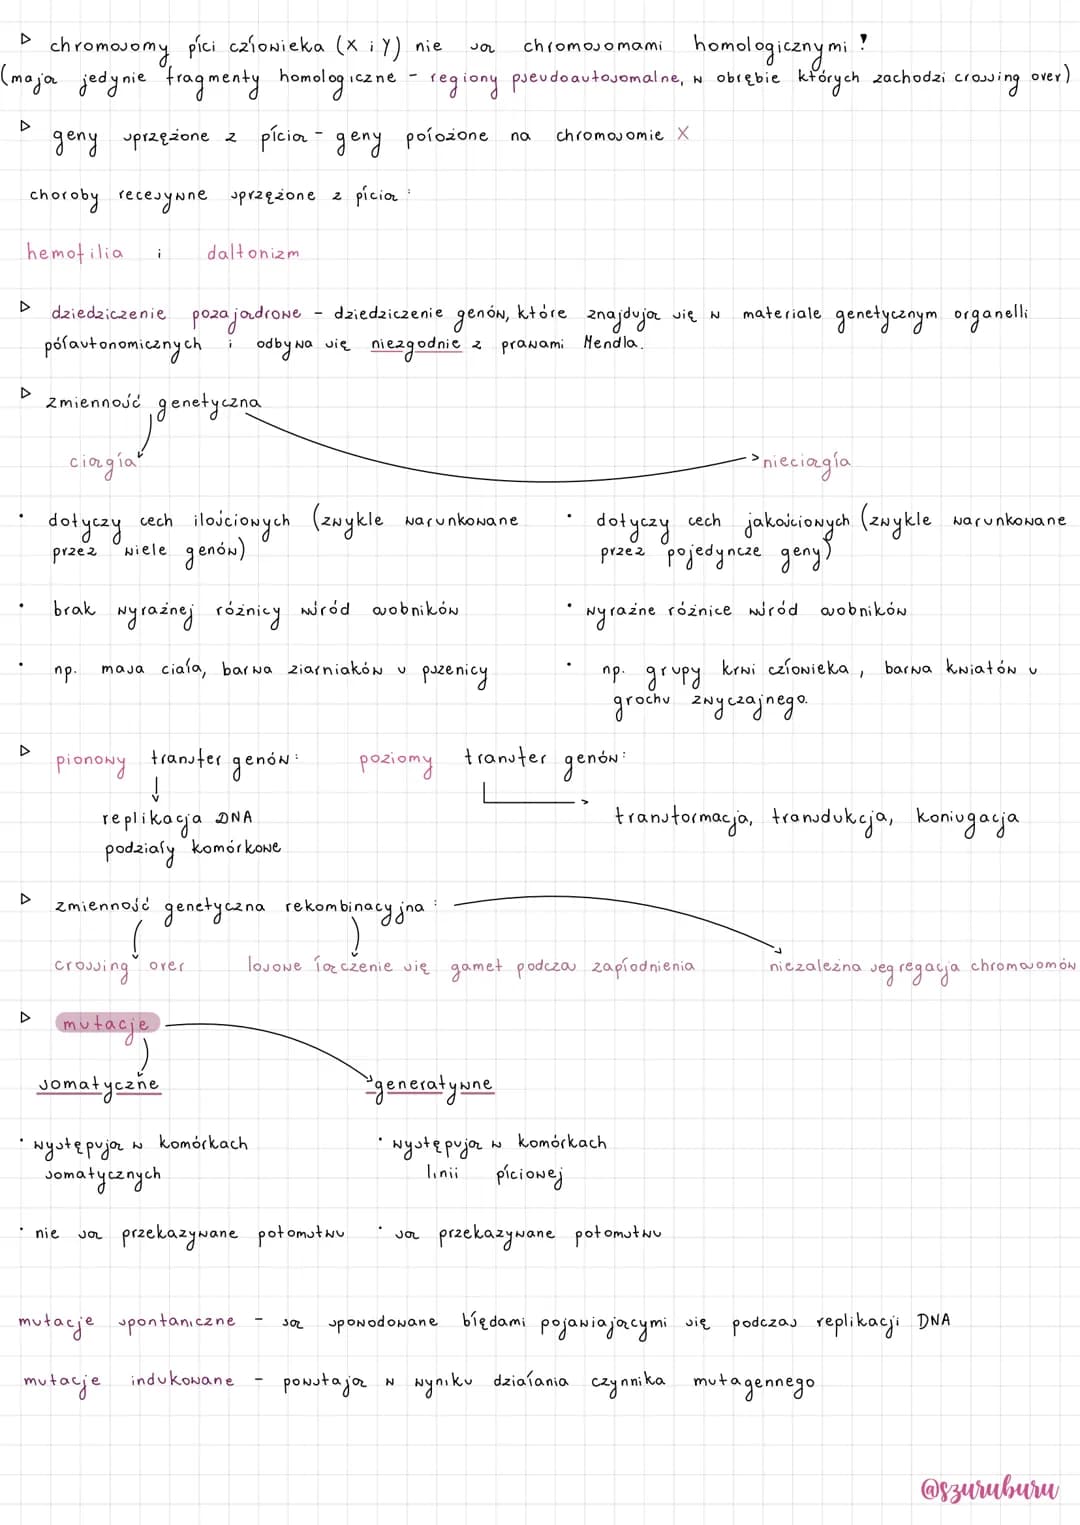 ▷ chromosomy płci człowieka (X i Y) nie są chromosomami homologicznymi !
(mają jedynie fragmenty homologiczne - regiony pseudoautosomalne, w obrębie których zachodzi crossing over)
▷ geny sprzężone z płcią - geny położone na chromosomie X
choroby recesywne sprzężone z płcią :
hemofilia i daltonizm
▷ dziedziczenie pozajądrowe - dziedziczenie genów, które znajdują się w materiale genetycznym organelli
półautonomicznych i odbywa się niezgodnie z prawami Mendla.
▷ zmienność genetyczna
ciągła nieciągła
• dotyczy cech ilościowych (zwykle warunkowane • dotyczy cech jakościowych (zwykle warunkowane
przez wiele genów) przez pojedyncze geny)
• brak wyraźnej różnicy wśród osobników • wyraźne różnice wśród osobników
• np. masa ciała, barwa ziarniaków u pszenicy • np. grupy krwi człowieka, barwa kwiatów u
grochu zwyczajnego.
▷ pionowy transfer genów: poziomy transfer genów:
replikacja DNA transformacja, transdukcja, koniugacja
podziały komórkowe
▷ zmienność genetyczna rekombinacyjna :
crossing over losowe łączenie się gamet podczas zapłodnienia niezależna segregacja chromosomów
▷ mutacje
somatyczne generatywne
• występują w komórkach • występują w komórkach
somatycznych linii płciowej
• nie są przekazywane potomstwu • są przekazywane potomstwu
mutacje spontaniczne - są spowodowane błędami pojawiającymi się podczas replikacji DNA
mutacje indukowane - powstają w wyniku działania czynnika mutagennego
@szuruburu